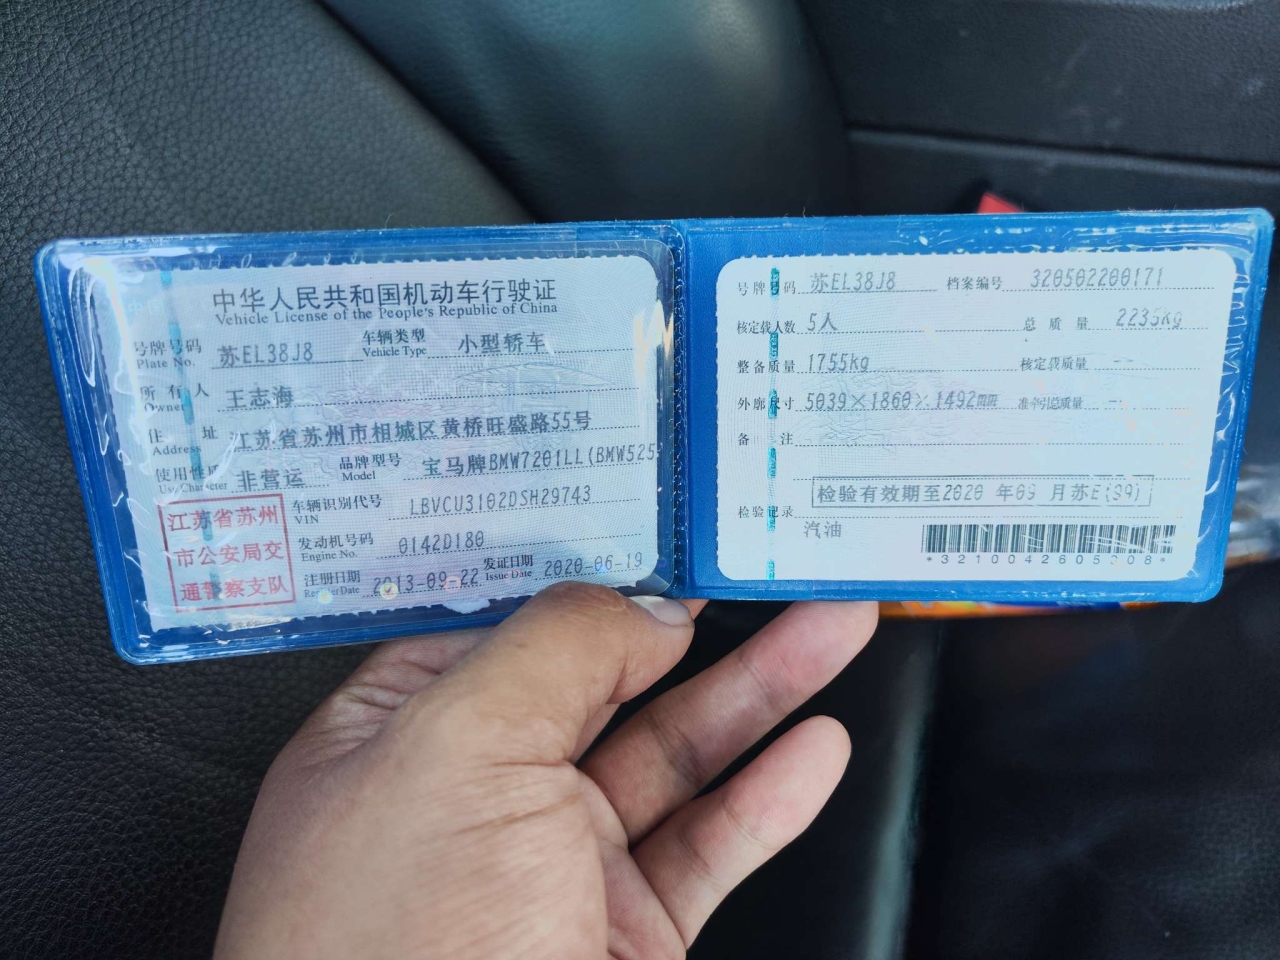 中华人民共和国机动车行驶证
Vehicle License of the People's Republic of China
号牌号码 苏EL38J8 车辆类型 小型轿车
Plate No. Vehicle Type
所有人 王志海
Owner
住址 江苏省苏州市相城区黄桥旺盛路55号
Address
使用性质 非营运 品牌型号 宝马牌BMW7201LL(BMW525
Use Character Model
江苏省苏州
市公安局交
通警察支队
车辆识别代号 LBVCU3102DSH29743
VIN
发动机号码 0142D180
Engine No.
注册日期 2013-09-22 发证日期 2020-06-19
Register Date Issue Date
号牌号码 苏EL38J8 档案编号 320502200171
核定载人数 5人 总质量 2235kg
整备质量 1755kg 核定载质量
外廓尺寸 5039×1860×1492mm 准牵引总质量 --
备注
检验有效期至2020 年09 月苏E(99)
检验记录
汽油